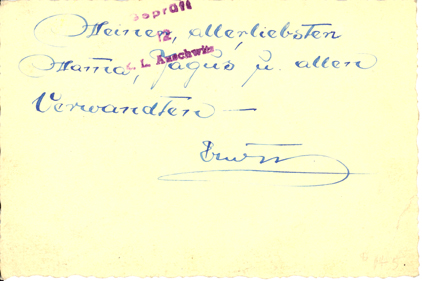 geprüft
12
K. L. Auschwitz
Meiner, allerliebsten
Mama, Jaguś u. allen
Verwandten —